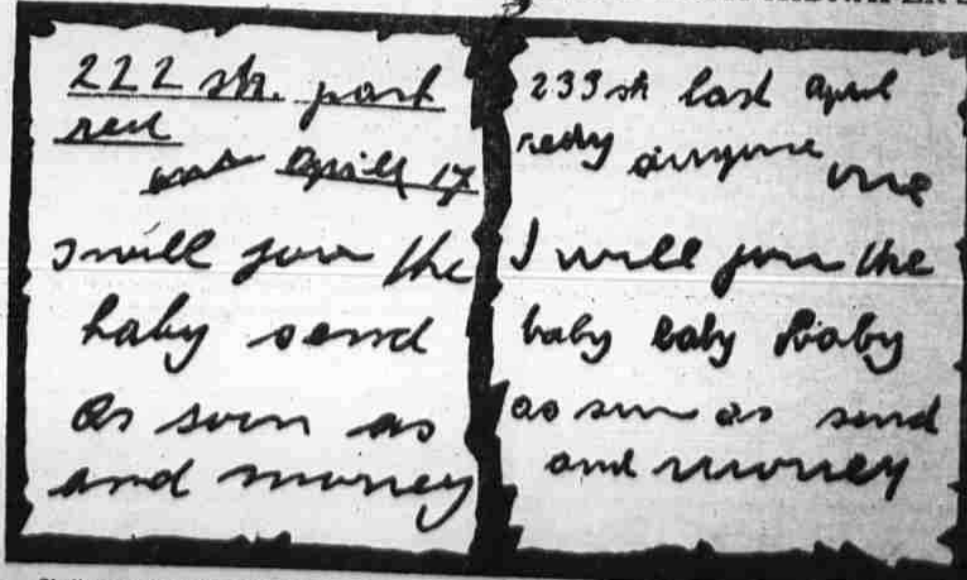 222 str. part
rest
April 17
I will you the
baby send
as soon as
and money
239 str last April
redy anyone one
I will you the
baby baby baby
as soon as send
and money